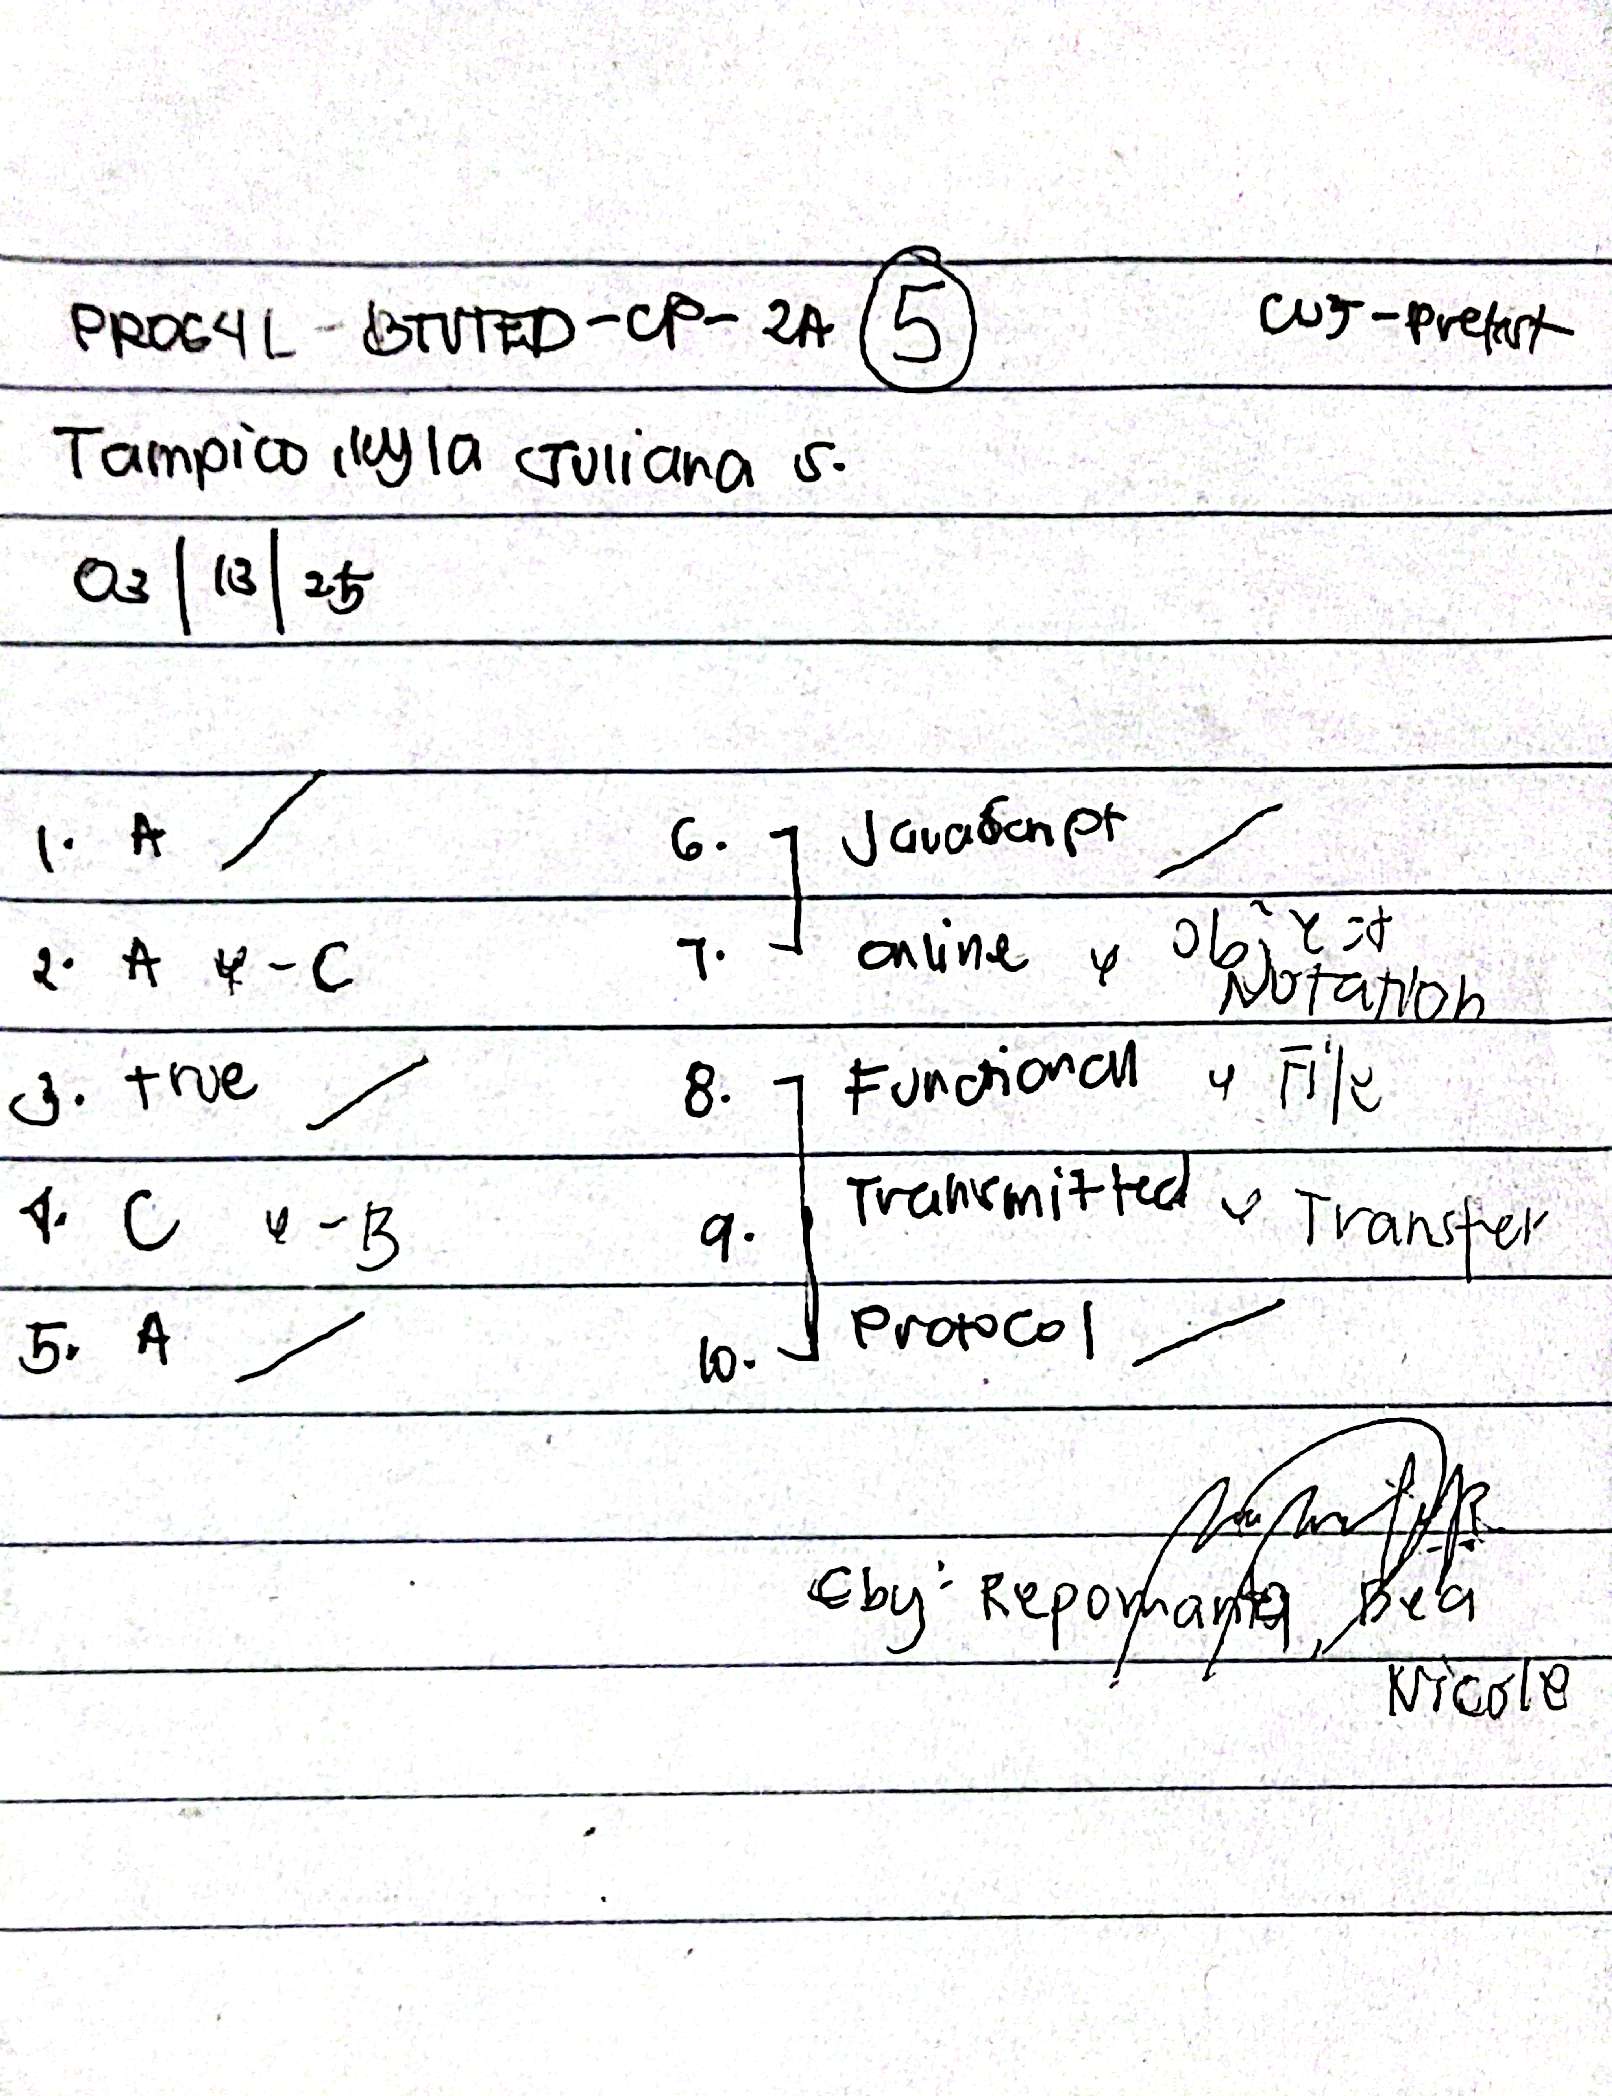 PROG4L - BTVTED - CP - 2A 5 CU5 - Pretest
Tampico, Kyla Juliana S.
03 | 13 | 25
1. A /
2. A x - C
3. true /
4. C x - B
5. A /
6. JavaScript /
7. online x Object Notation
8. Functional x File
9. Transmitted x Transfer
10. Protocol /
Cby: Repomanta, Bea
Nicole